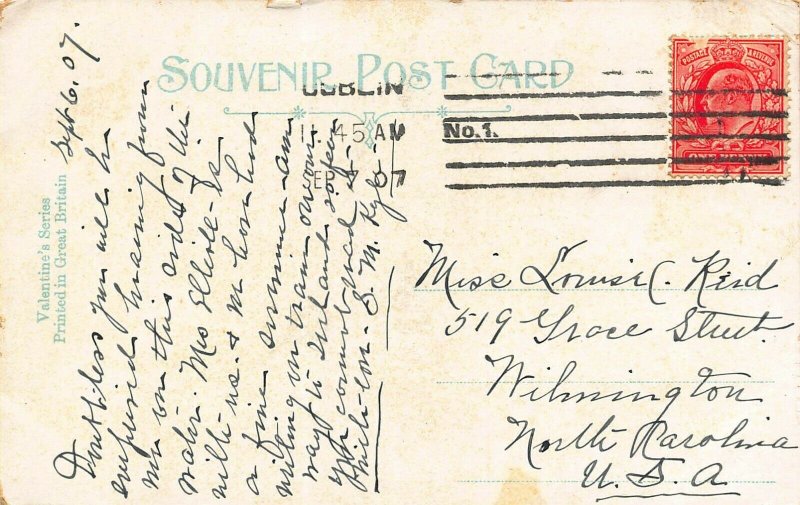 SOUVENIR POST CARD
DUBLIN
11.45 AM
SEP 07
No.1.
Valentine's Series
Printed in Great Britain
Sept 6. 07.
Doubtless you will be
surprised hearing from
me on this side of the
water. Mrs is
with us & we have had
a fine summer am
writing on train on our
way to Ireland so fear
you cannot read it.
S. M. Kyle
Miss Louise C. Reid
519 Grace Street.
Wilmington
North Carolina
U. S. A